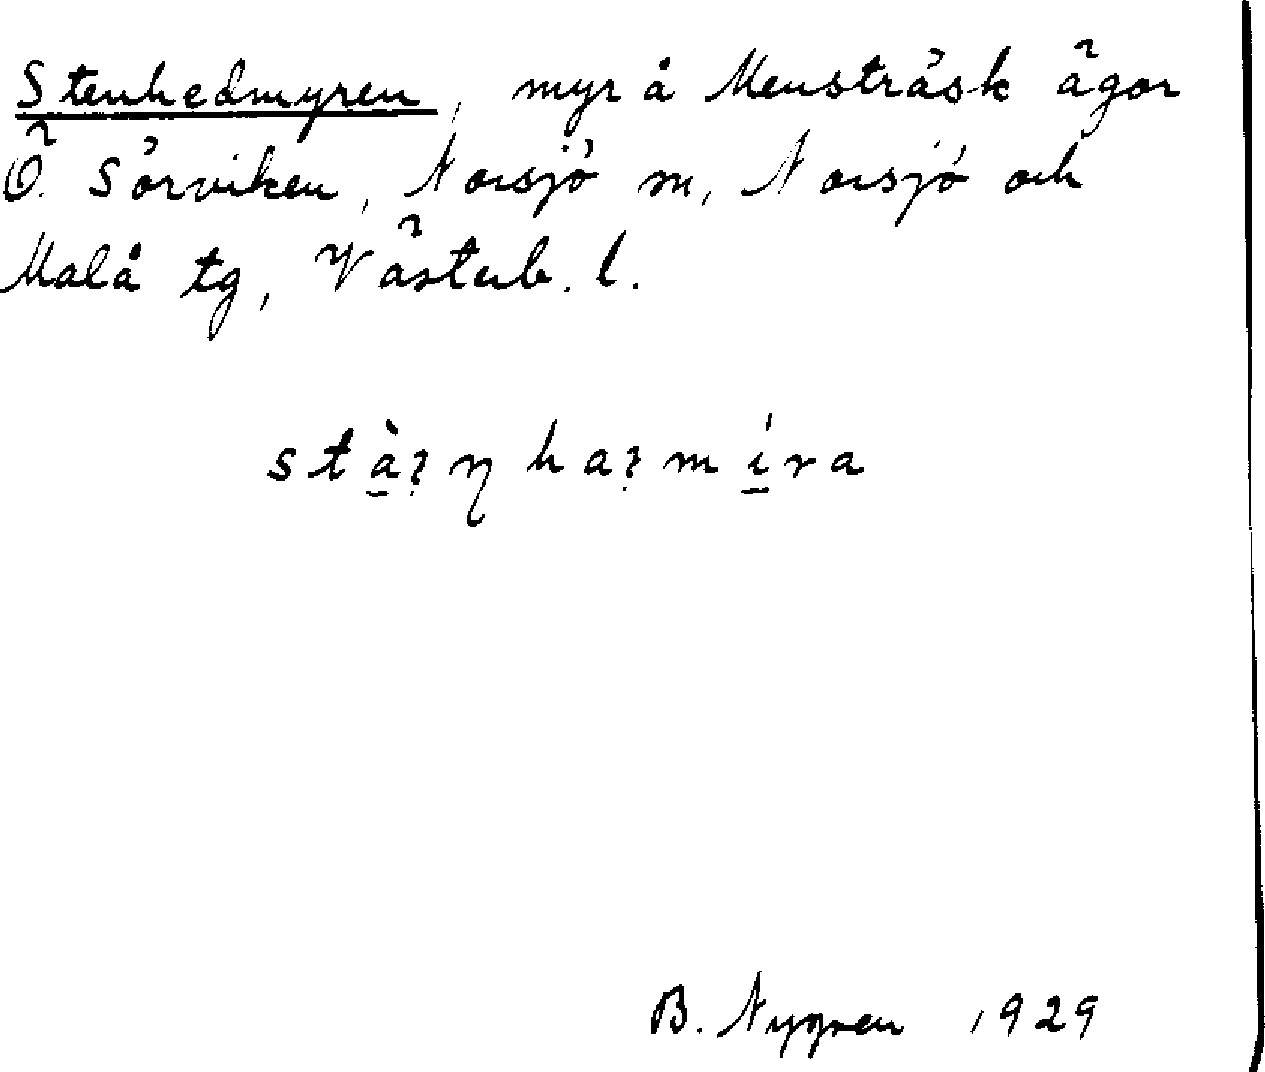 Stenhedmyren, myr å Mensträsk ägor
Ö. Sörviken, Norsjö sn, Norsjö och
Malå tg, Västerb. l.
stàꝛŋhaꝛmíra
B. Nygren 1929